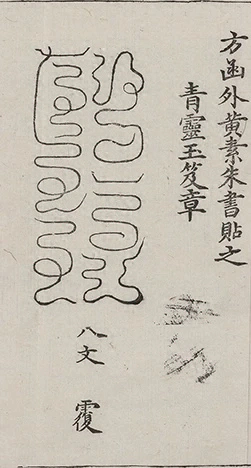 方函外黄素朱書貼之
青靈玉笈章
八文